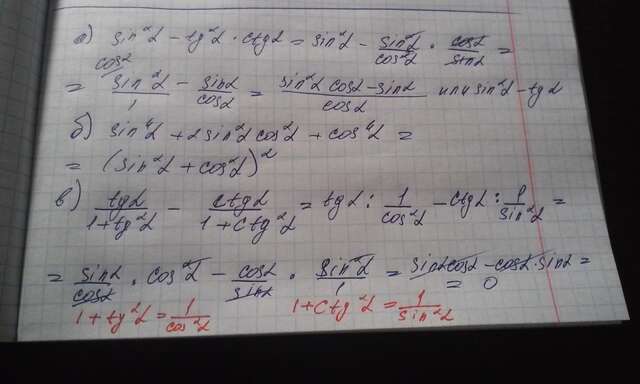 а) sin²α − tg²α · ctgα = sin²α − sin²α/cos²α · cosα/sinα =
= cosα sin²α/1 − sinα/cosα = (sin²α cosα − sinα)/cosα или sin²α − tgα
б) sin⁴α + 2sin²α cos²α + cos⁴α =
= (sin²α + cos²α)²
в) tgα/(1+tg²α) − ctgα/(1+ctg²α) = tgα : 1/cos²α − ctgα : 1/sin²α =
= sinα/cosα · cos²α − cosα/sinα · sin²α/1 = sinα cosα − cosα · sinα =
= 0
1+tg²α = 1/cos²α 1+ctg²α = 1/sin²α